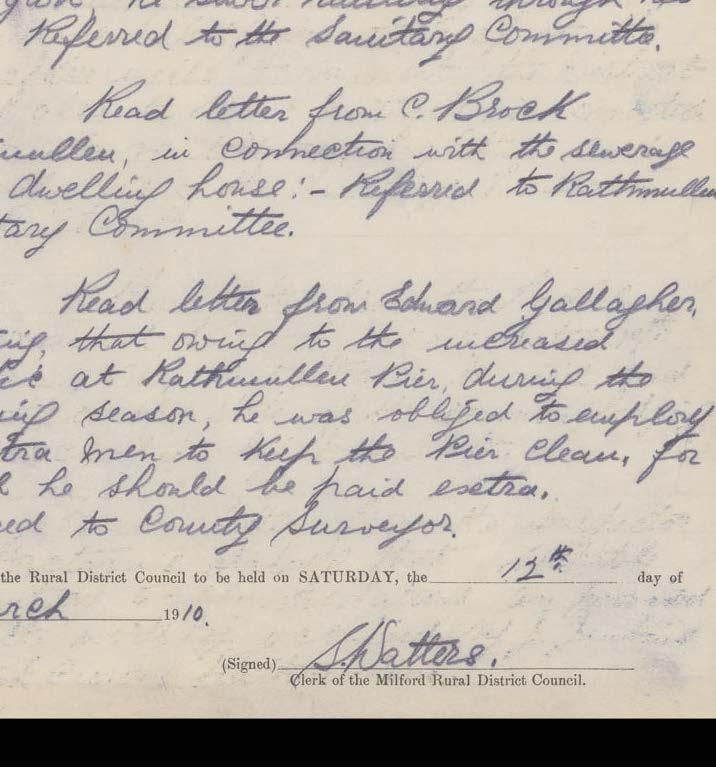 he
through
Referred to the Sanitary Committee.
Read letter from C. Brock
mullen, in connection with the sewerage
dwelling house:- Referred to Rathmullen
tary Committee.
Read letter from Edward Gallagher,
ing, that owing to the increased
fic at Rathmullen Pier, during the
ing season, he was obliged to employ
tra men to keep the Pier clean, for
h he should be paid extra.
red to County Surveyor.
the Rural District Council to be held on SATURDAY, the 12th. day of
rch 1910.
(Signed) S. Watters.
Clerk of the Milford Rural District Council.